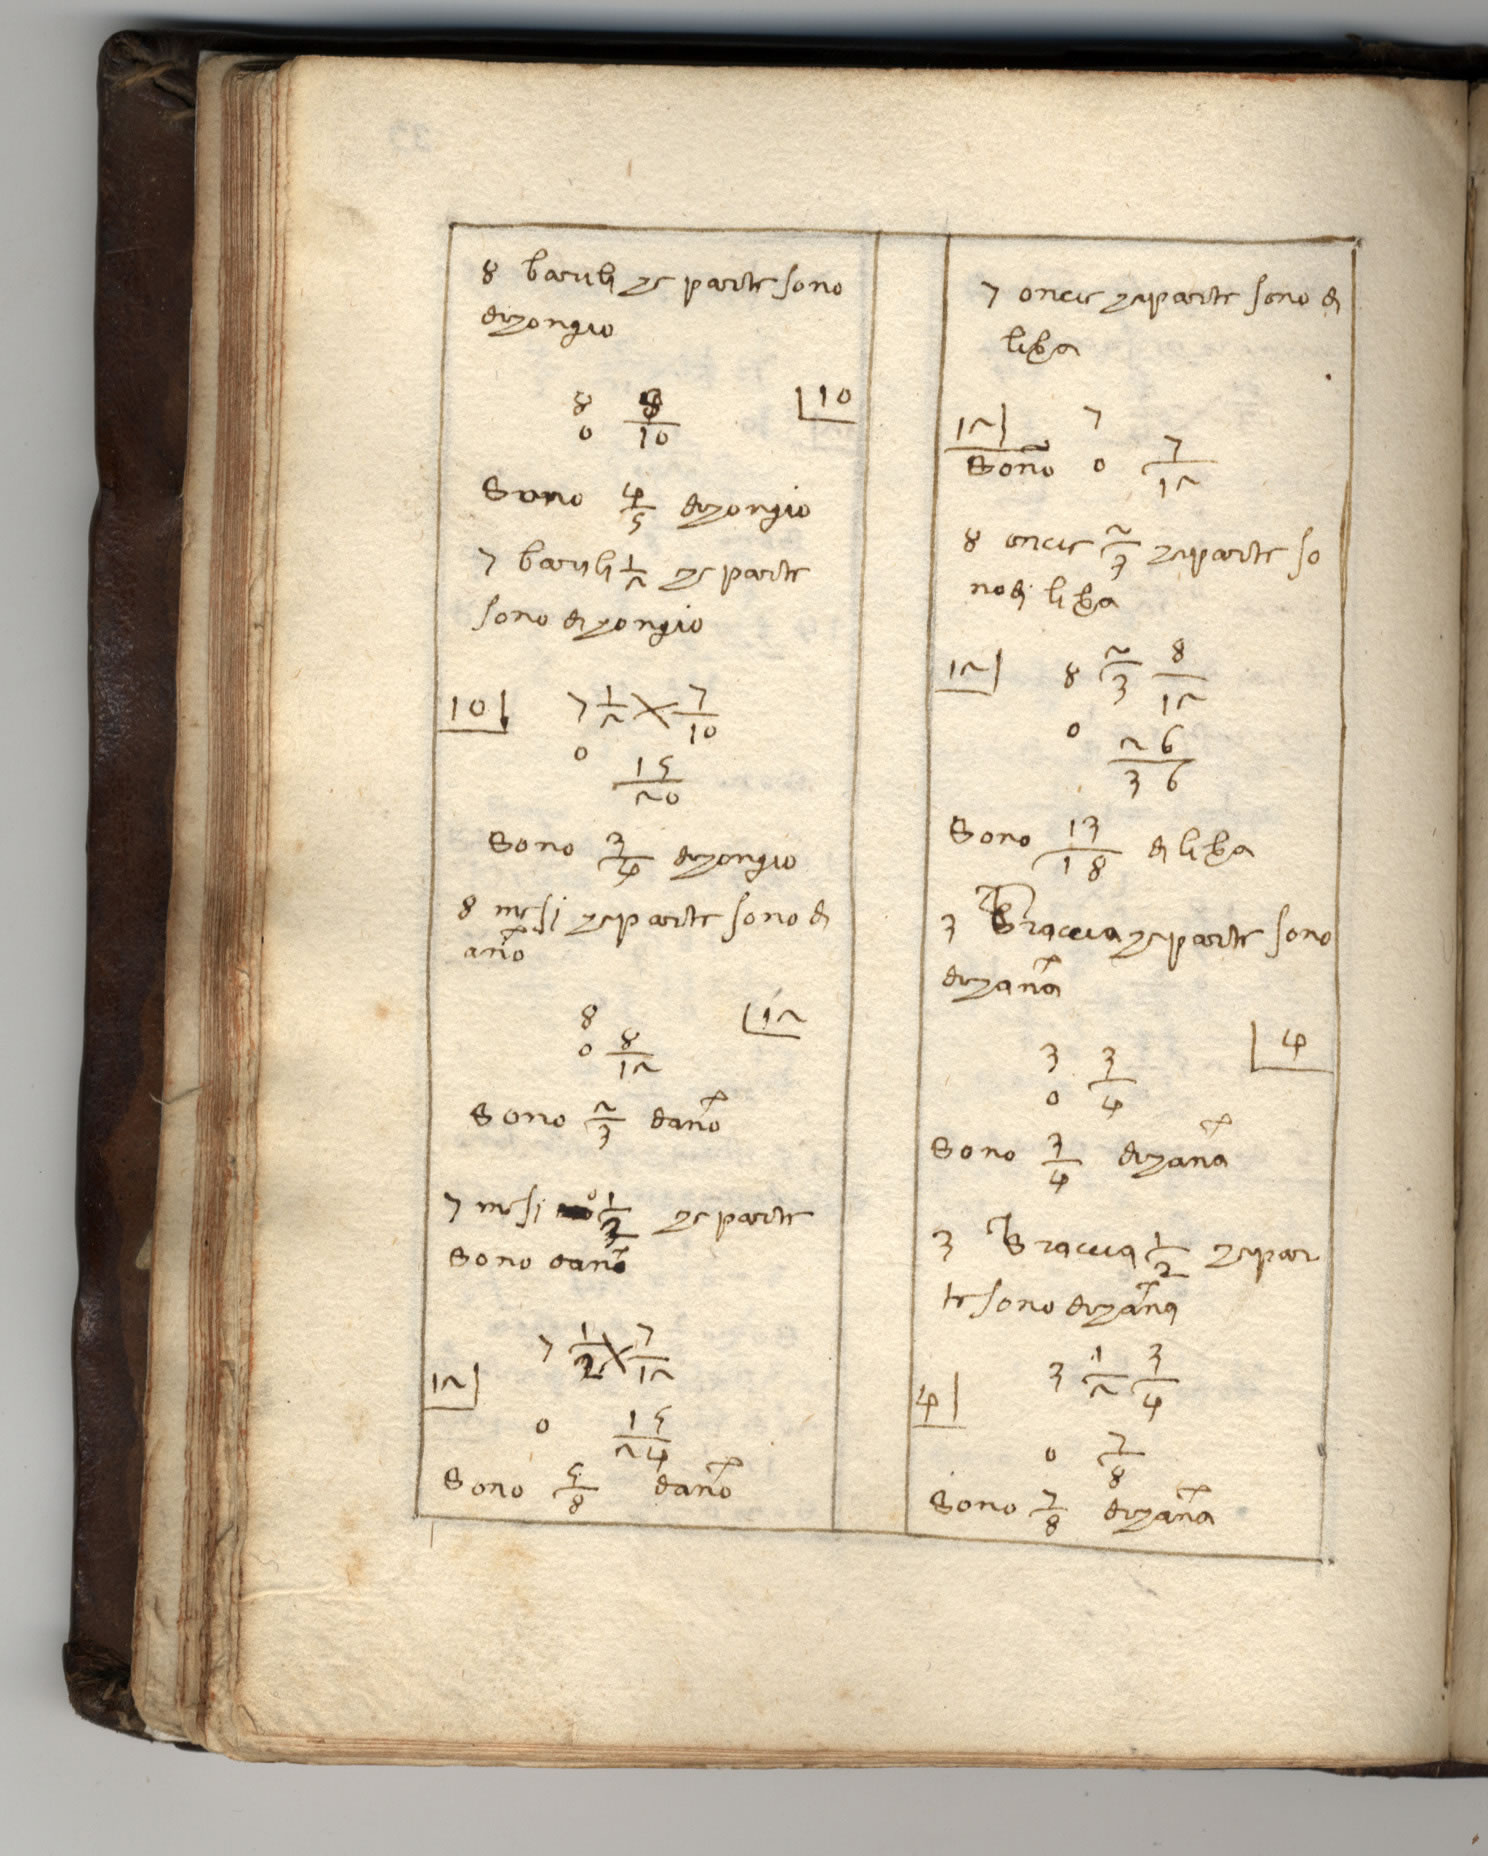 8 barili che parte sono
di chongio
8 8/10 10
0
Sono 4/5 di chongio
7 barili 1/2 che parte
sono di chongio
10 7 1/2 7/10
0 15/20
Sono 3/4 di chongio
8 mesi che parte sono di
año
8 12
0 8/12
Sono 2/3 daño
7 mesi 1/2 che parte
Sono daño
7 1/2 7/12
12
0 15/24
Sono 5/8 daño
7 oncie che parte sono di
libra
12 7
Sono 0 7/12
8 oncie 2/3 che parte so
no di libra
12 8 2/3 8/12
0 26/36
Sono 13/18 di libra
3 Braccia che parte sono
di chaña
3 3/4 4
0
Sono 3/4 di chaña
3 Braccia 1/2 che par
te sono di chaña
4 3 1/2 3/4
0 7/8
Sono 7/8 di chaña